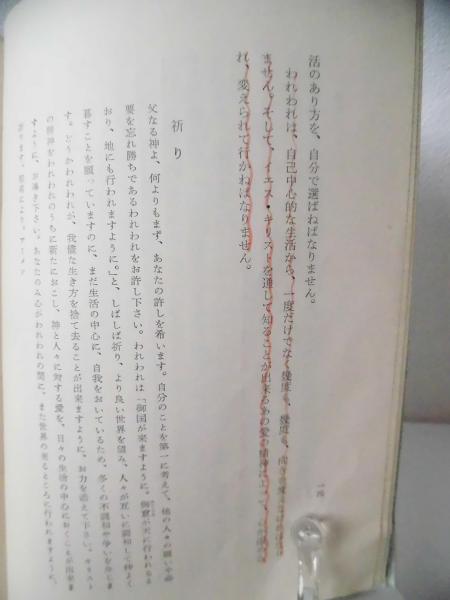 活のあり方を、自分で選ばねばなりません。
われわれは、自己中心的な生活から、一度だけでなく幾度も、幾度も、向きを変えなければなり
ません。そして、イエス・キリストを通して知ることが出来るあの愛の精神によって、
れ、変えられて行かねばなりません。
祈り
父なる神よ、何よりもまず、あなたの許しを希います。自分のことを第一に考えて、他の人々の願いや必
要を忘れ勝ちであるわれわれをお許し下さい。われわれは「御国が来ますように。御意が天に行われると
おり、地にも行われますように。」と、しばしば祈り、より良い世界を望み、人々が互いに調和して仲よく
暮すことを願っていますのに、まだ生活の中心に、自我をおいているため、多くの不調和や争いを生じま
す。どうかわれわれが、我儘な生き方を捨て去ることが出来ますように、お力を添えて下さい。キリスト
の精神をわれわれのうちに新たにおこし、神と人々に対する愛を、日々の生活の中心におくことが出来ま
すように、お導き下さい。あなたのみ心がわれわれの間に、また世界の至るところに行われますように、
祈ります。アーメン
一四